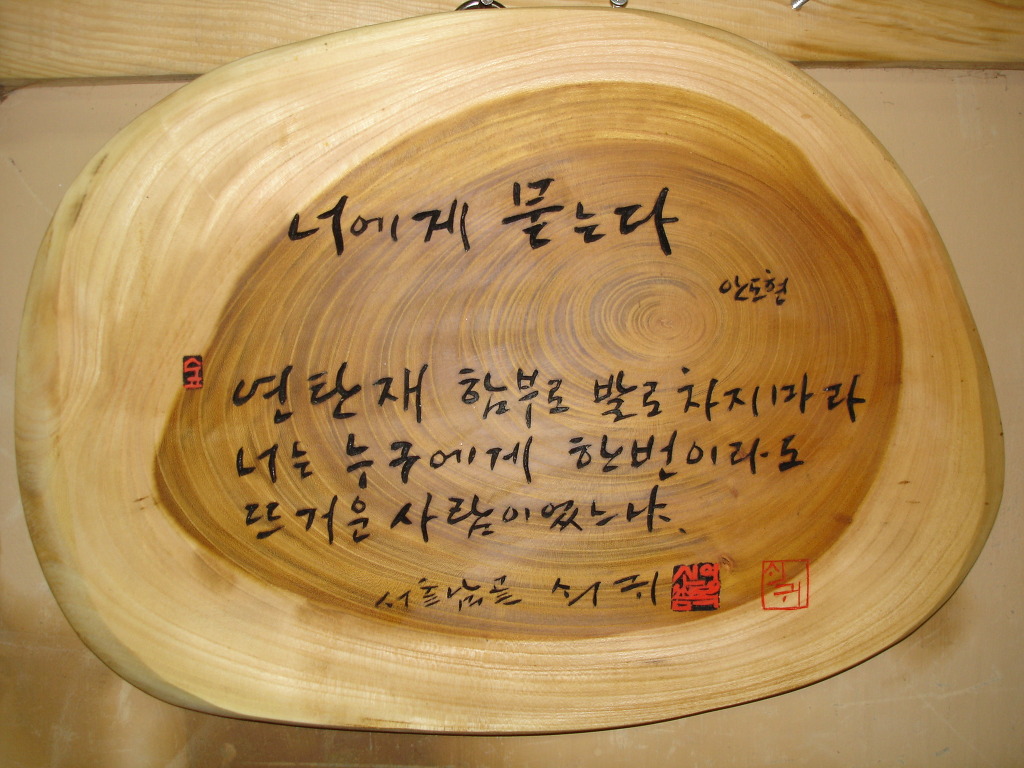 너에게 묻는다
안도현
연탄재 함부로 발로차지마라
너는 누구에게 한번이라도
뜨거운 사람이었느냐.